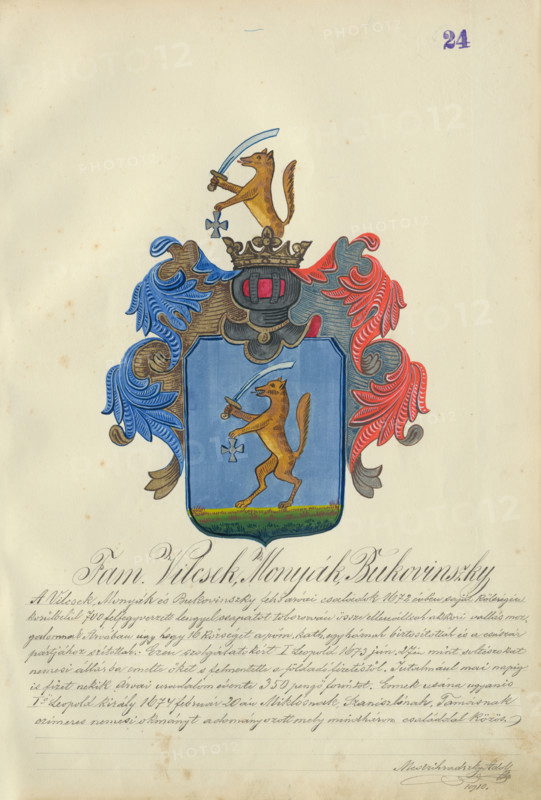 24
Fam. Vilcsek, Monyák, Bukovinszky
A Vilcsek, Monyák és Bukovinszky felső árvai családok 1672 évben saját költségin
700 felfegyverzett lengyel csapatot toborozván össze ellenálltak akkori vallás moz-
galomnak Árvában úgy hogy 16 községet a róm. kath. egyháznak biztosítottak és a császár
pártjához Ezen szolgálatokért I Leopold 1673 jun. mint
nemesi sorba emelte őket s felmentette a földadó fizetéstől. mai napig
is fizet nekik Árvai uradalom évente 350 pengő forintot. Ennek utána ugyanis
I Leopold király 1674 február 20 án Miklósnak, Tamásnak
czímeres nemesi okmányt adományozott mely mindhárom családdal közös.
1910.